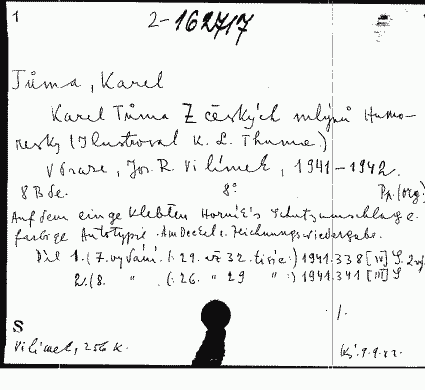 1
2-162717
Tůma, Karel
Karel Tůma Z českých mlýnů Humo-
resky (Ilustroval K. L. Thuma.)
V Praze, Jos. R. Vilímek, 1941-1942.
8 Bde. 8° Pp. (org)
Auf dem einge klebten Schutzumschlag e.
farbige Autotypie. Am Deckel e. Zeichnungswiedergabe.
Díl 1. (7. vydání. (: 29. až 32. tisíc:) 1941. 338 [IV] S.
2. (8. " (: 26. " 29 " :) 1941. 341 [III] S
./.
S
Vilímek, 256 K.